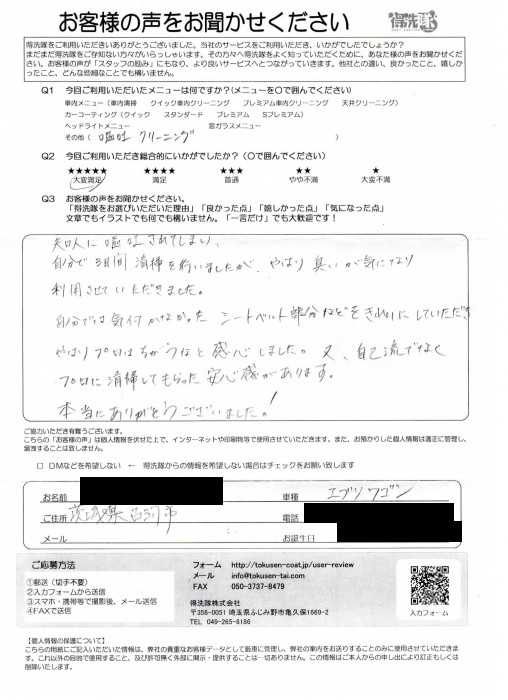 お客様の声をお聞かせください
得洗隊
得洗隊をご利用いただきありがとうございました。当社のサービスをご利用いただき、いかがでしたでしょうか?
まだまだ得洗隊をご存知ない方々がいらっしゃいます。その方々へ得洗隊をよく知っていただくために、あなた様の声をお聞かせくだ
さい。お客様の声が「スタッフの励み」にもなり、より良いサービスへとつながっていきます。他社との違い、良かったこと、嬉し
かったこと、どんな些細なことでも構いません。
Q1 今回ご利用いただいたメニューは何ですか?(メニューを〇で囲んでください)
車内メニュー(車内清掃 クイック車内クリーニング プレミアム車内クリーニング 天井クリーニング)
カーコーティング(クイック スタンダード プレミアム Sプレミアム)
ヘッドライトメニュー 窓ガラスメニュー
その他( 嘔吐 クリーニング )
Q2 今回ご利用いただき総合的にいかがでしたか?(〇で囲んでください)
★★★★★ ★★★★ ★★★ ★★ ★
大変満足 満足 普通 やや不満 大変不満
Q3 お客様の声をお聞かせください。
「得洗隊をお選びいただいた理由」「良かった点」「嬉しかった点」「気になった点」
文章でもイラストでも何でも構いません。「一言だけ」でも大歓迎です!
知人に嘔吐されてしまい、
自分で 清掃を行いましたが、やはり臭いが気になり
利用させていただきました。
自分では気付かなかった シートベルト部分などをきれいにしていただき
やはりプロはちがうなと感心しました。又、自己流でなく
プロに清掃してもらった安心感があります。
本当にありがとうございました!
ご協力いただき有難うございます。
こちらの「お客様の声」は個人情報を伏せた上で、インターネットや印刷物等で使用させていただきます。また、お預かりした個人情報は適正に管理し、
漏洩することは致しません。
□ DMなどを希望しない ← 得洗隊からの情報を希望しない場合はチェックをお願い致します
お名前 車種 エブリワゴン
ご住所 茨城県 市 電話
メール お誕生日
ご応募方法
①郵送(切手不要)
②入力フォームから送信
③スマホ・携帯等で撮影後、メール送信
④FAXで送信
フォーム http://tokusen-coat.jp/user-review
メール info@tokusen-tai.com
FAX 050-3737-8479
得洗隊株式会社
〒356-0051 埼玉県ふじみ野市亀久保1669-2
TEL 049-265-6186
入力フォーム
【個人情報の保護について】
こちらの用紙にご記入いただいた情報は、弊社の貴重なお客様データとして厳重に管理し、弊社の案内をお送りすることのみに使用させていただきま
す。これ以外の目的で使用すること、及び許可無く外部に開示・提供することは一切ありません。この情報はご本人からの申し出により訂正もしくは
削除いたします。